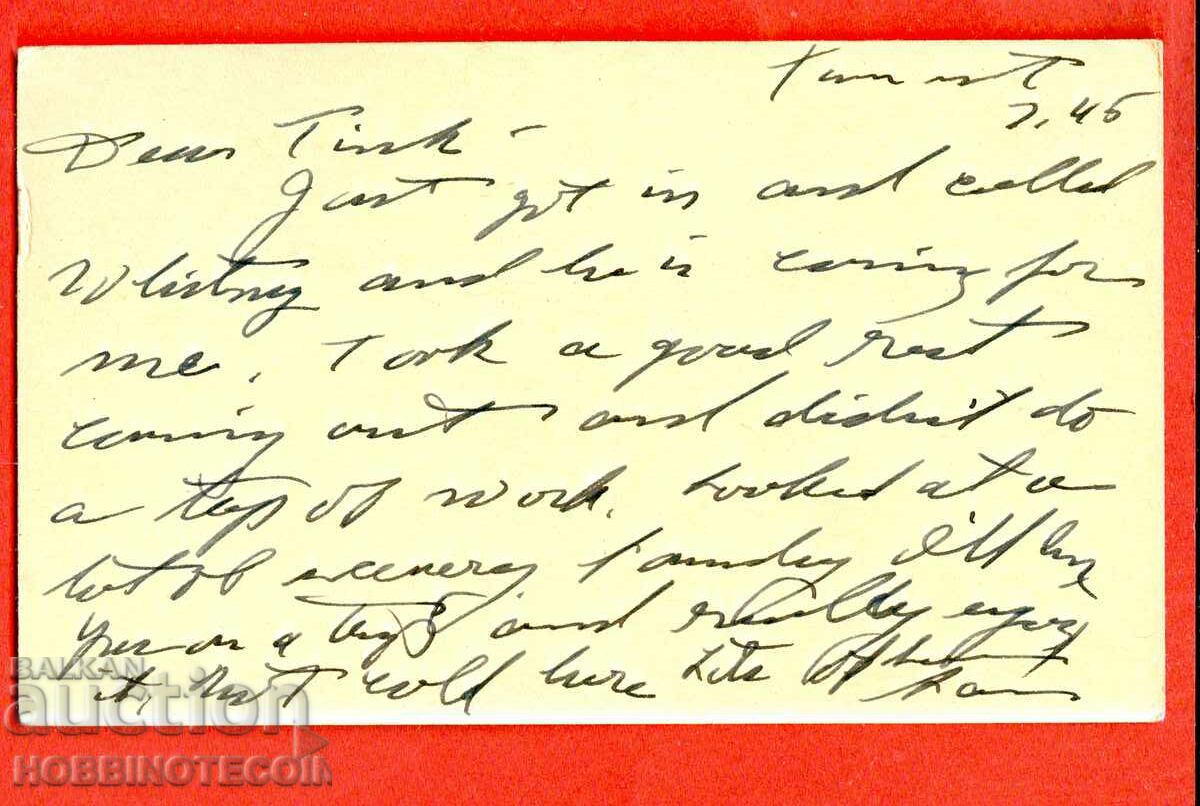 7,45
Dear Tink -
Just got in and called
Whitney and he is coming for
me. Took a good rest
coming out and didn't do
a tap of work. Looked at a
lot of scenery Sunday I'll
you on a trip and really enjoy
it. Not cold here Lots of
BALKAN
auction
HOBBINOTECOIN